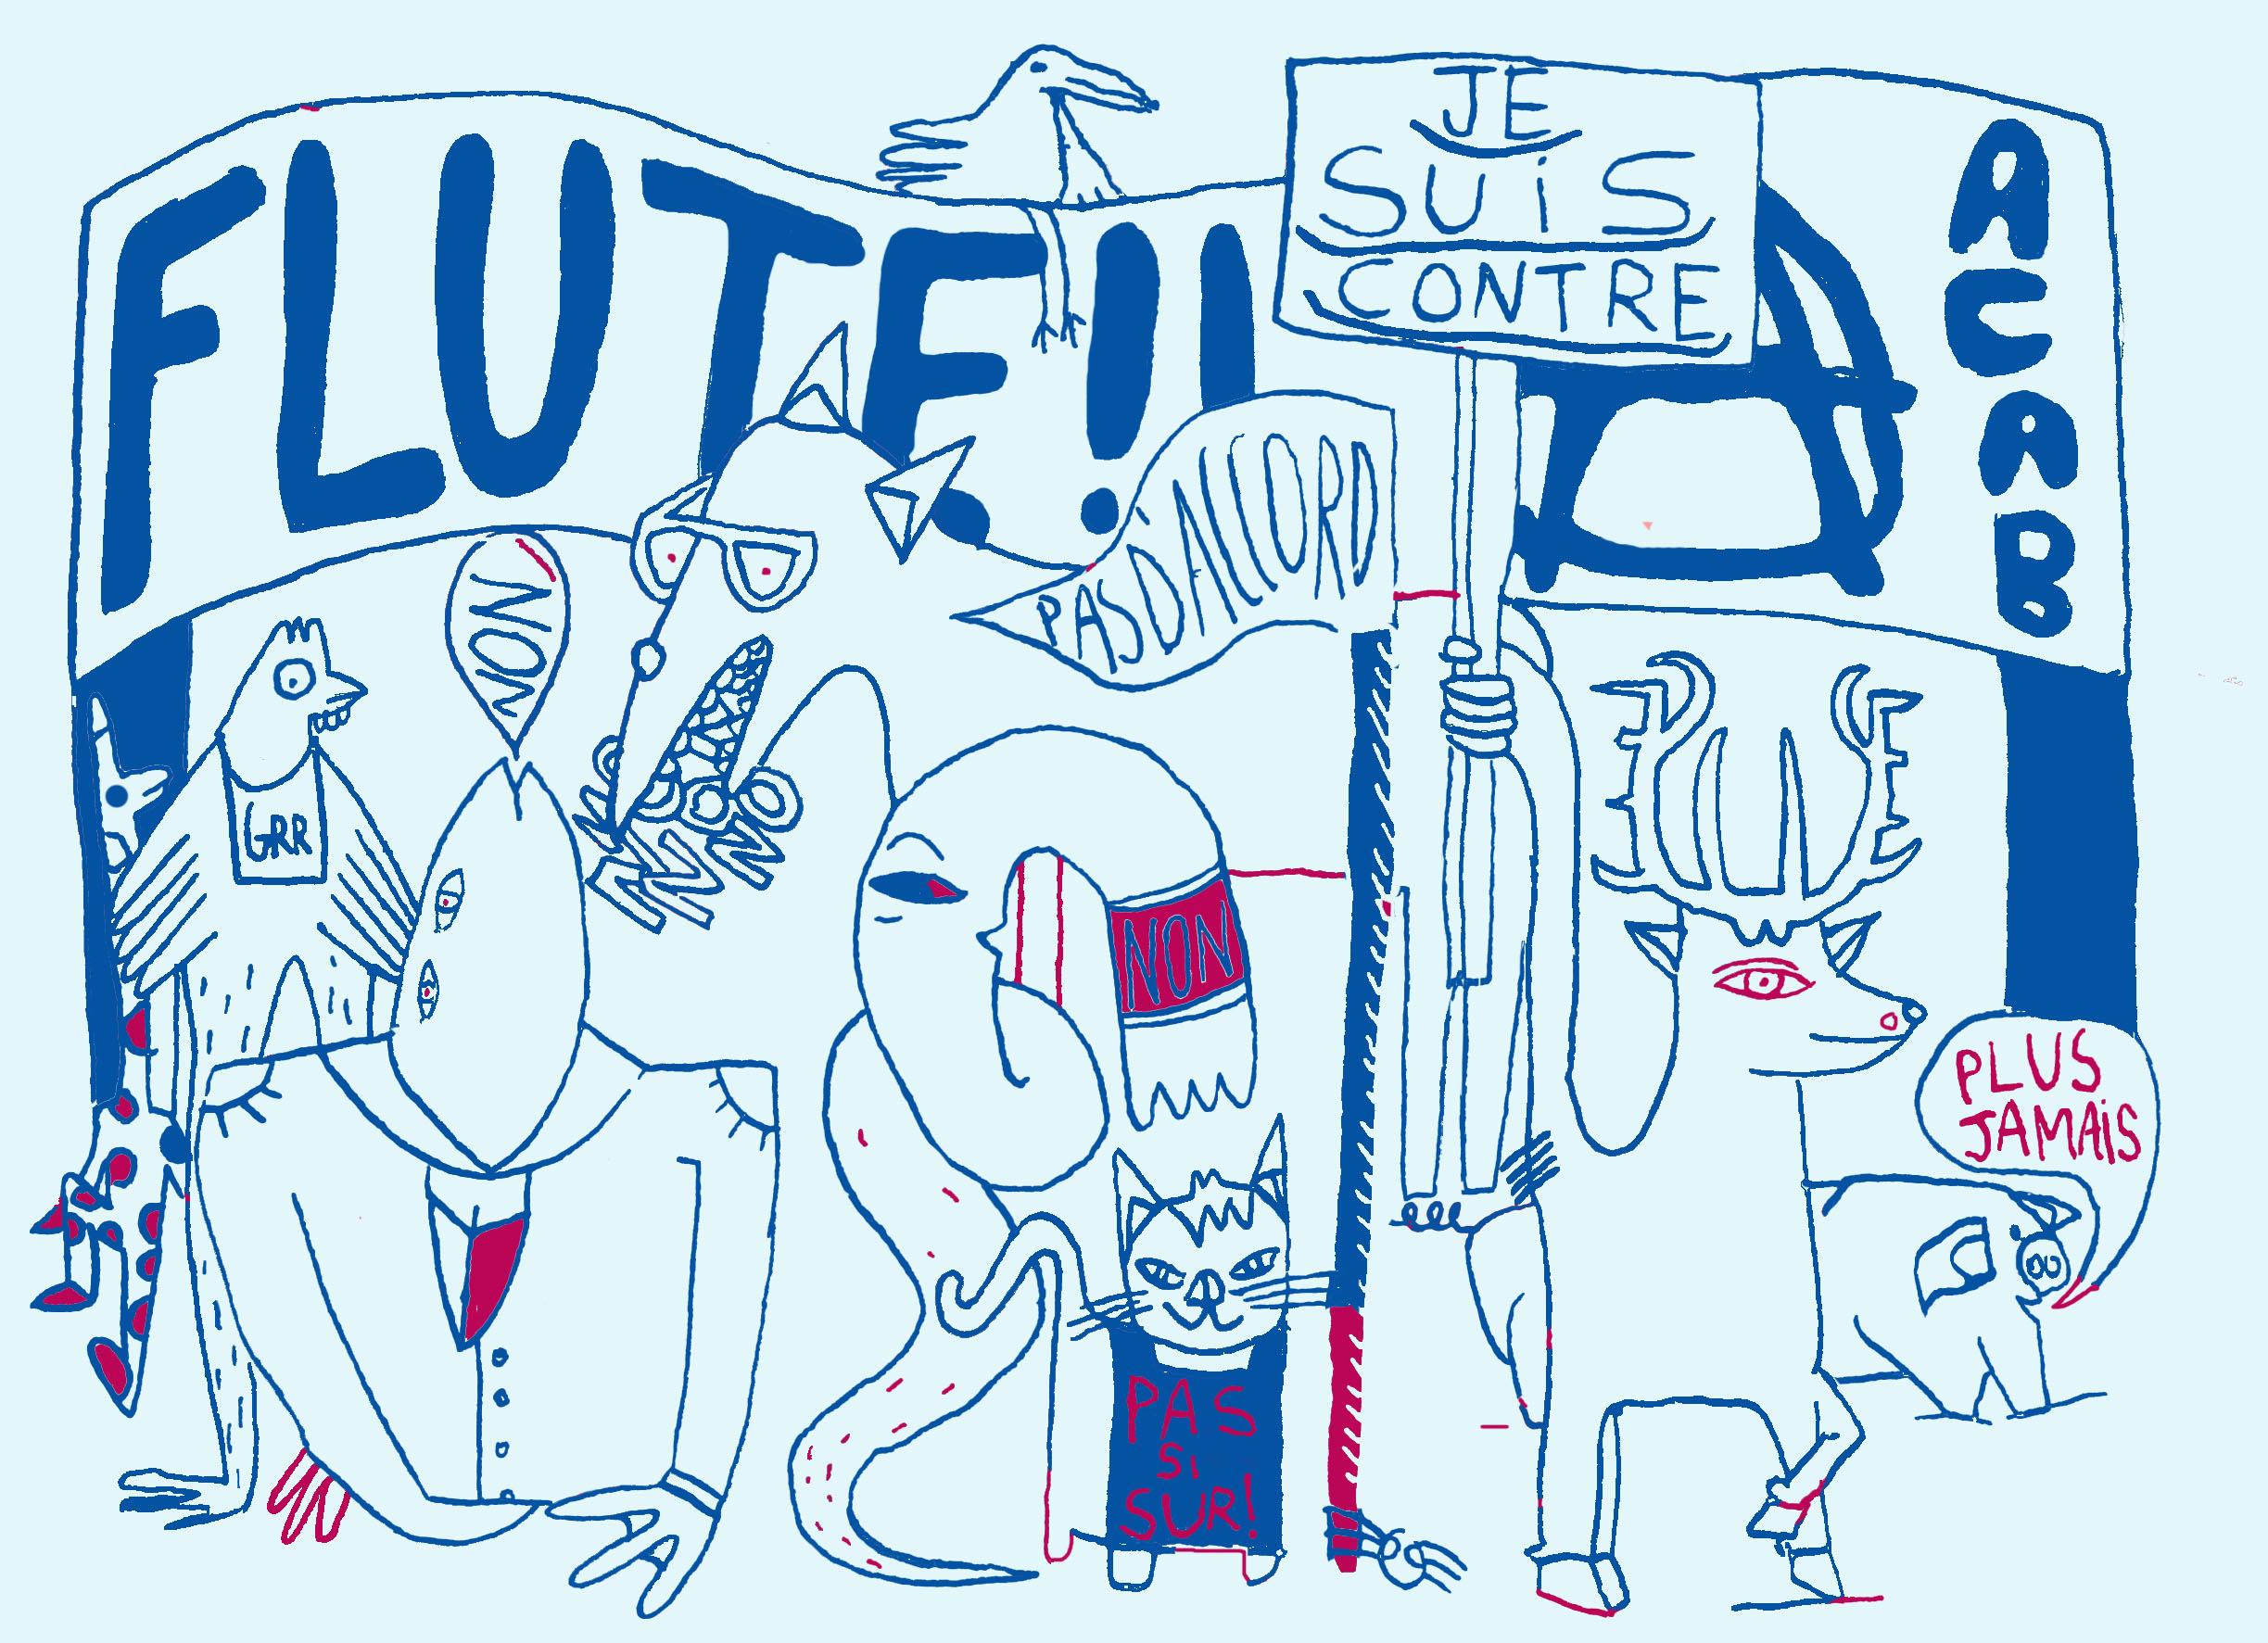 FLUTE!!
JE
SUiS
CONTRE
A
ACAB
PAS D'ACCORD
NON
GRR
NON
PLUS
JAMAiS
PAS
Si
SUR!